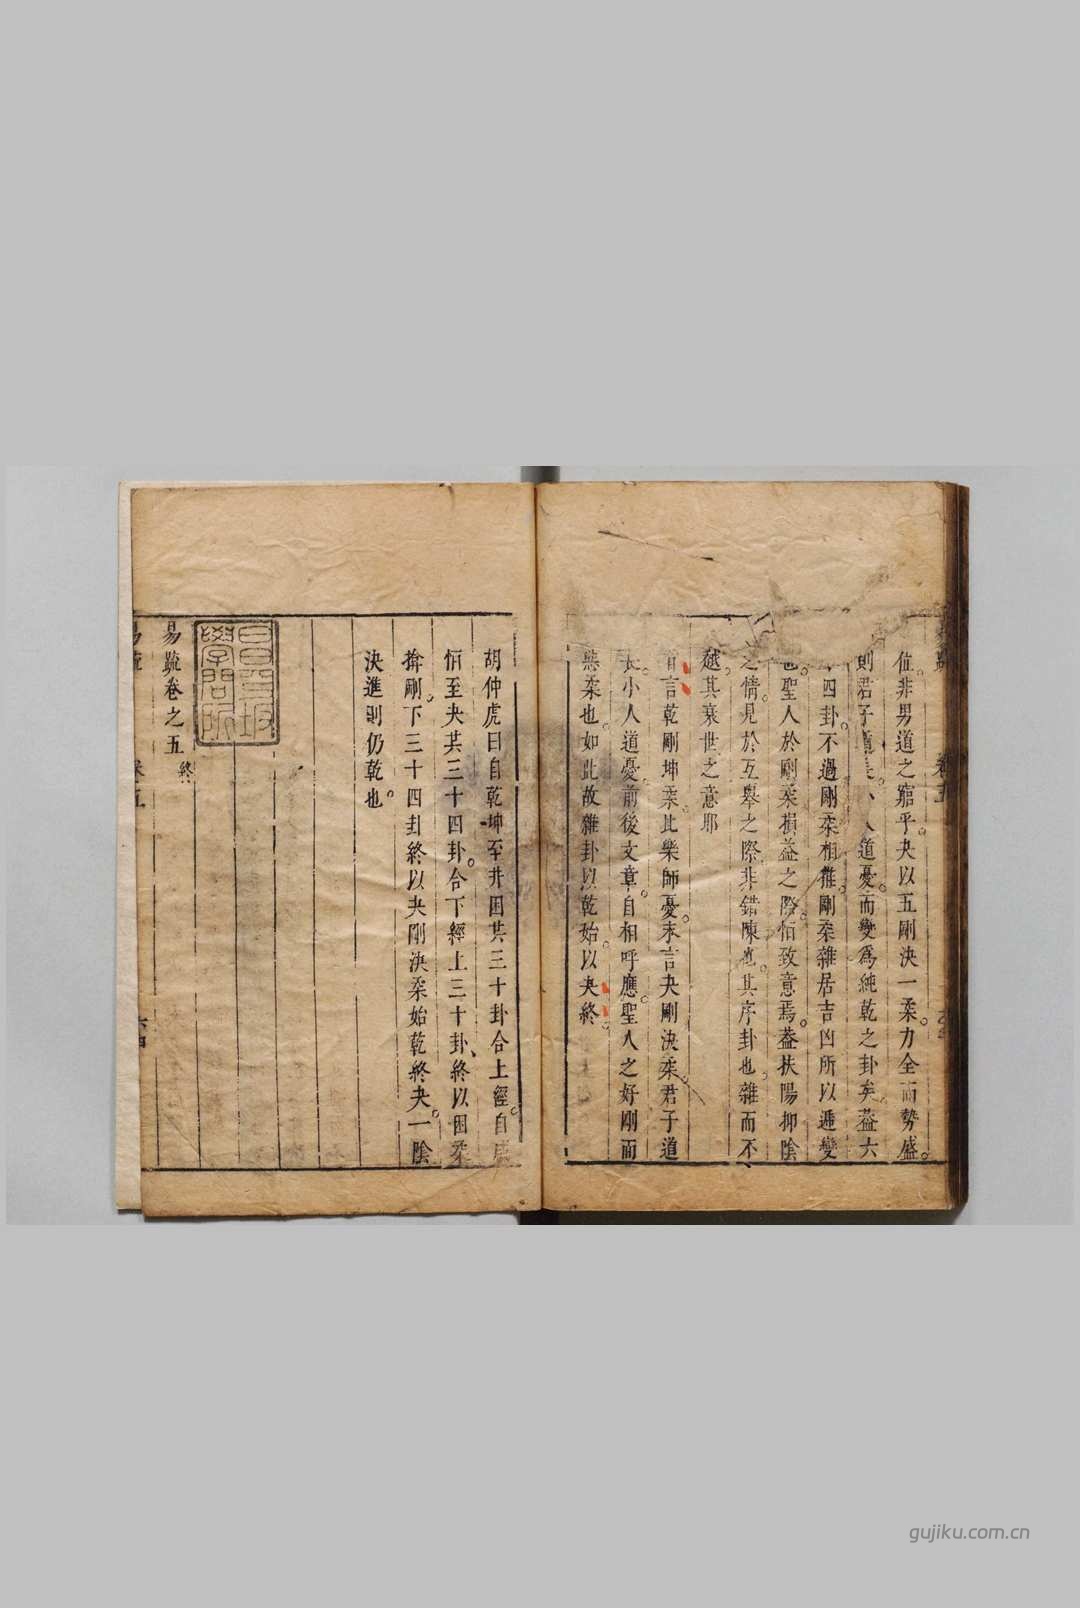 位非男道之窮乎夬以五剛決一柔力全而勢盛
則君子道長小人道憂而變為純乾之卦矣蓋六
四卦不過剛柔相推剛柔雜居吉凶所以遞變
也聖人於剛柔損益之際恒致意焉蓋扶陽抑陰
之情見於互舉之際非錯陳也其序卦也雜而不
越其衰世之意耶
首言乾剛坤柔比樂師憂末言夬剛決柔君子道
長小人道憂前後文章自相呼應聖人之好剛而
惡柔也如此故雜卦以乾始以夬終
胡仲虎曰自乾坤至井困共三十卦合上經自咸
恒至夬共三十四卦合下經上三十卦終以困柔
揜剛下三十四卦終以夬剛決柔始乾終夬一陰
決進則仍乾也
昌平坂
學問所
易疏卷之五終
易疏
卷五
六十四
gujiku.com.cn